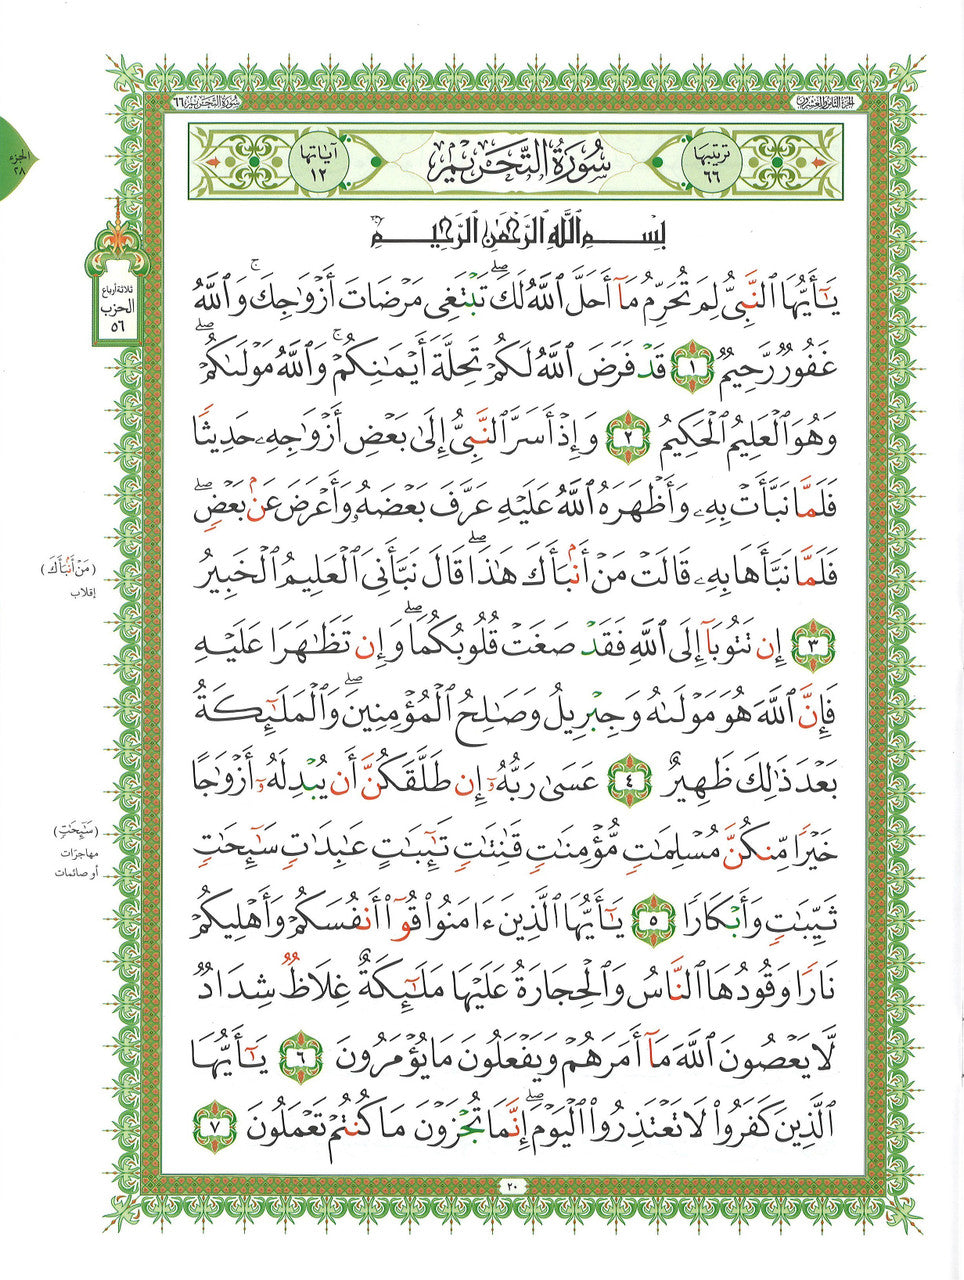 سورة التحريم ٦٦
الجزء الثامن والعشرون
الجزء
٢٨
ترتيبها
٦٦
سُورَةُ التَّحْرِيمِ
آياتها
١٢
بِسْمِ ٱللَّهِ ٱلرَّحْمَٰنِ ٱلرَّحِيمِ
يَٰٓأَيُّهَا ٱلنَّبِىُّ لِمَ تُحَرِّمُ مَآ أَحَلَّ ٱللَّهُ لَكَ ۖ تَبْتَغِى مَرْضَاتَ أَزْوَٰجِكَ ۚ وَٱللَّهُ
غَفُورٌ رَّحِيمٌ ١ قَدْ فَرَضَ ٱللَّهُ لَكُمْ تَحِلَّةَ أَيْمَٰنِكُمْ ۚ وَٱللَّهُ مَوْلَىٰكُمْ ۖ
وَهُوَ ٱلْعَلِيمُ ٱلْحَكِيمُ ٢ وَإِذْ أَسَرَّ ٱلنَّبِىُّ إِلَىٰ بَعْضِ أَزْوَٰجِهِۦ حَدِيثًا
فَلَمَّا نَبَّأَتْ بِهِۦ وَأَظْهَرَهُ ٱللَّهُ عَلَيْهِ عَرَّفَ بَعْضَهُۥ وَأَعْرَضَ عَنۢ بَعْضٍ ۖ
فَلَمَّا نَبَّأَهَا بِهِۦ قَالَتْ مَنْ أَنۢبَأَكَ هَٰذَا ۖ قَالَ نَبَّأَنِىَ ٱلْعَلِيمُ ٱلْخَبِيرُ
٣ إِن تَتُوبَآ إِلَى ٱللَّهِ فَقَدْ صَغَتْ قُلُوبُكُمَا ۖ وَإِن تَظَٰهَرَا عَلَيْهِ
فَإِنَّ ٱللَّهَ هُوَ مَوْلَىٰهُ وَجِبْرِيلُ وَصَٰلِحُ ٱلْمُؤْمِنِينَ ۖ وَٱلْمَلَٰٓئِكَةُ
بَعْدَ ذَٰلِكَ ظَهِيرٌ ٤ عَسَىٰ رَبُّهُۥٓ إِن طَلَّقَكُنَّ أَن يُبْدِلَهُۥٓ أَزْوَٰجًا
خَيْرًا مِّنكُنَّ مُسْلِمَٰتٍ مُّؤْمِنَٰتٍ قَٰنِتَٰتٍ تَٰٓئِبَٰتٍ عَٰبِدَٰتٍ سَٰٓئِحَٰتٍ
ثَيِّبَٰتٍ وَأَبْكَارًا ٥ يَٰٓأَيُّهَا ٱلَّذِينَ ءَامَنُوا۟ قُوٓا۟ أَنفُسَكُمْ وَأَهْلِيكُمْ
نَارًا وَقُودُهَا ٱلنَّاسُ وَٱلْحِجَارَةُ عَلَيْهَا مَلَٰٓئِكَةٌ غِلَاظٌ شِدَادٌ
لَّا يَعْصُونَ ٱللَّهَ مَآ أَمَرَهُمْ وَيَفْعَلُونَ مَا يُؤْمَرُونَ ٦ يَٰٓأَيُّهَا
ٱلَّذِينَ كَفَرُوا۟ لَا تَعْتَذِرُوا۟ ٱلْيَوْمَ ۖ إِنَّمَا تُجْزَوْنَ مَا كُنتُمْ تَعْمَلُونَ ٧
ثلاثة أرباع
الحزب
٥٦
(مَنْ أَنۢبَأَكَ)
إقلاب
(سَٰٓئِحَٰتٍ)
مهاجرات
أو صائمات
٢٠